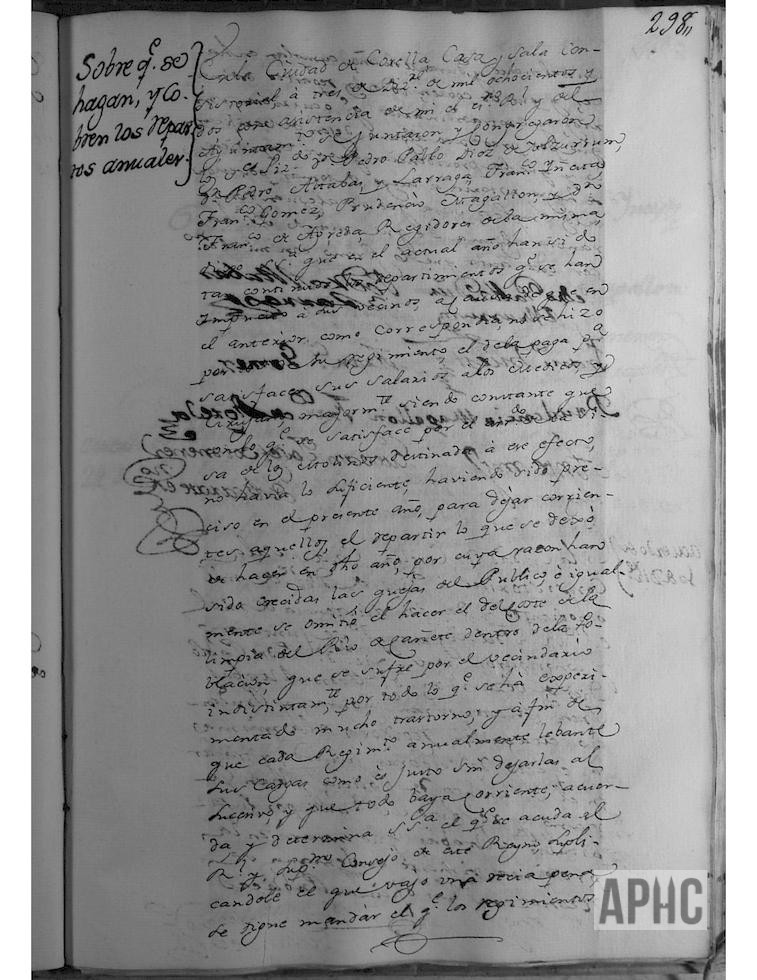 298,,
Sobre q.e se
hagan, y Co-
bren los repar-
tos anuales.
En la Ciudad de Corella Casa, y Sala Con-
sistorial à tres de de mil ochocientos y
dos con asistencia de mi el
Ayuntam.to se juntaron y congregaron
el Liz.do D.n Pedro Pablo Diez de Ulzurrun,
D.n Pedro Attaba, y Larraga, Fran.co Yñ
Fran.co Gomez, Prudencio Magallon, y D.n
Fran.co de Agreda Regidores de la misma,
que en el actual año han si do
continuos los repartimientos q.e se han
impuesto à sus vecinos, a causa de q.e en
el anterior, como correspondia, no se hizo
por su regimiento el de la paga p.a
satisfacer sus salarios a los
mayorm.te siendo constante que
q.e se satisface por el
sa de los destinada à ese efecto,
no havia lo suficiente, haviendo sido pre-
ciso en el presente año, para dejar corrien-
tes aquellos, el repartir lo que se dexò
de hacer en dho año, por cuya razon han
sido crecidas las quejas del Publico, è igual-
mente se omitiò el hacer el del coste de la
limpia del Rio Cañete dentro de la Po-
blacion, que se sufre por el vecindario
indistintam.te por todo lo q.e se hà experi-
mentado mucho trastorno, y à fin de
que cada Regim.to anualmente lebante
sus Cargas como es justo sin dejarlas al
sucesivo, y que todo baya corriente, acuer-
da y determina S.S.a el q.e se acuda al
R.l y Sup.mo Consejo de este Reyno, supli-
candole el que vajo una recia pena
se digne mandar el q.e los regimientos
APHC